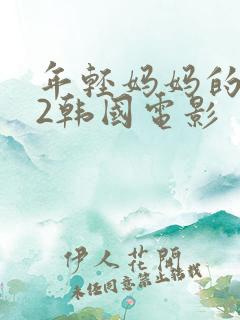 年轻妈妈的
2韩国电影
伊人花开
未经同意禁止转载